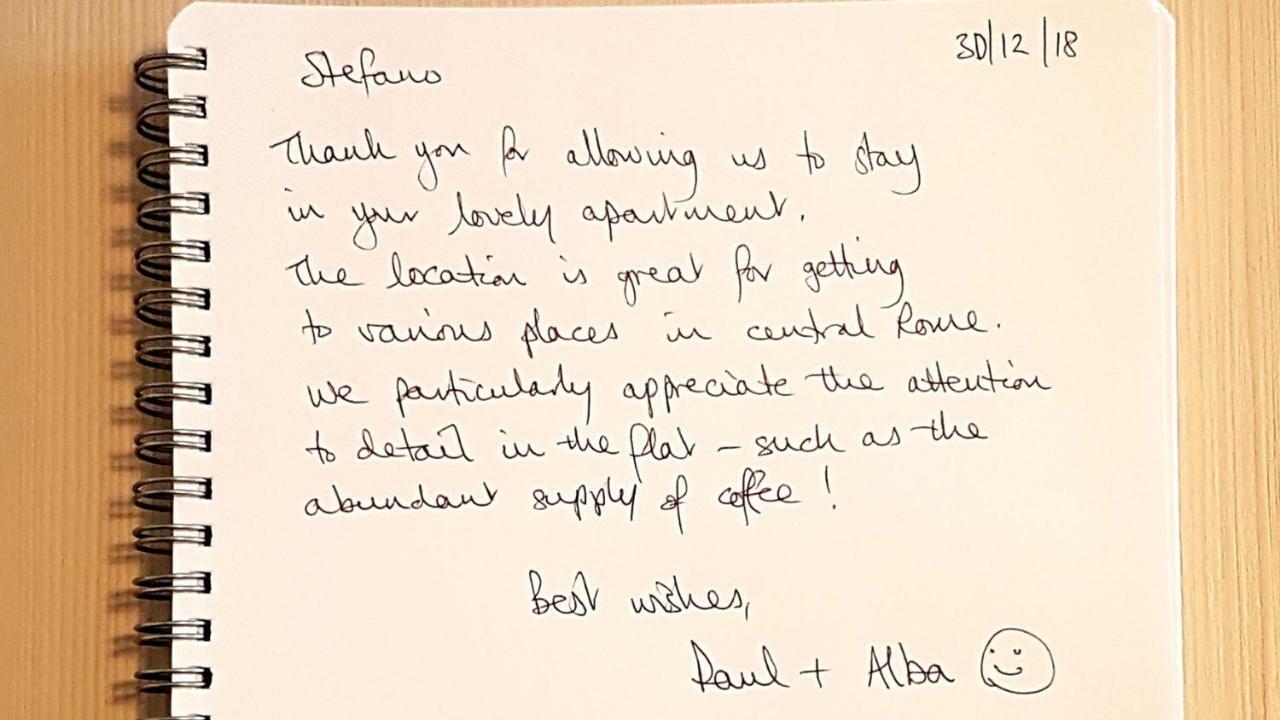 30/12/18
Stefano
Thank you for allowing us to stay
in your lovely apartment.
The location is great for getting
to various places in central Rome.
We particularly appreciate the attention
to detail in the flat – such as the
abundant supply of coffee!
Best wishes,
Paul + Alba